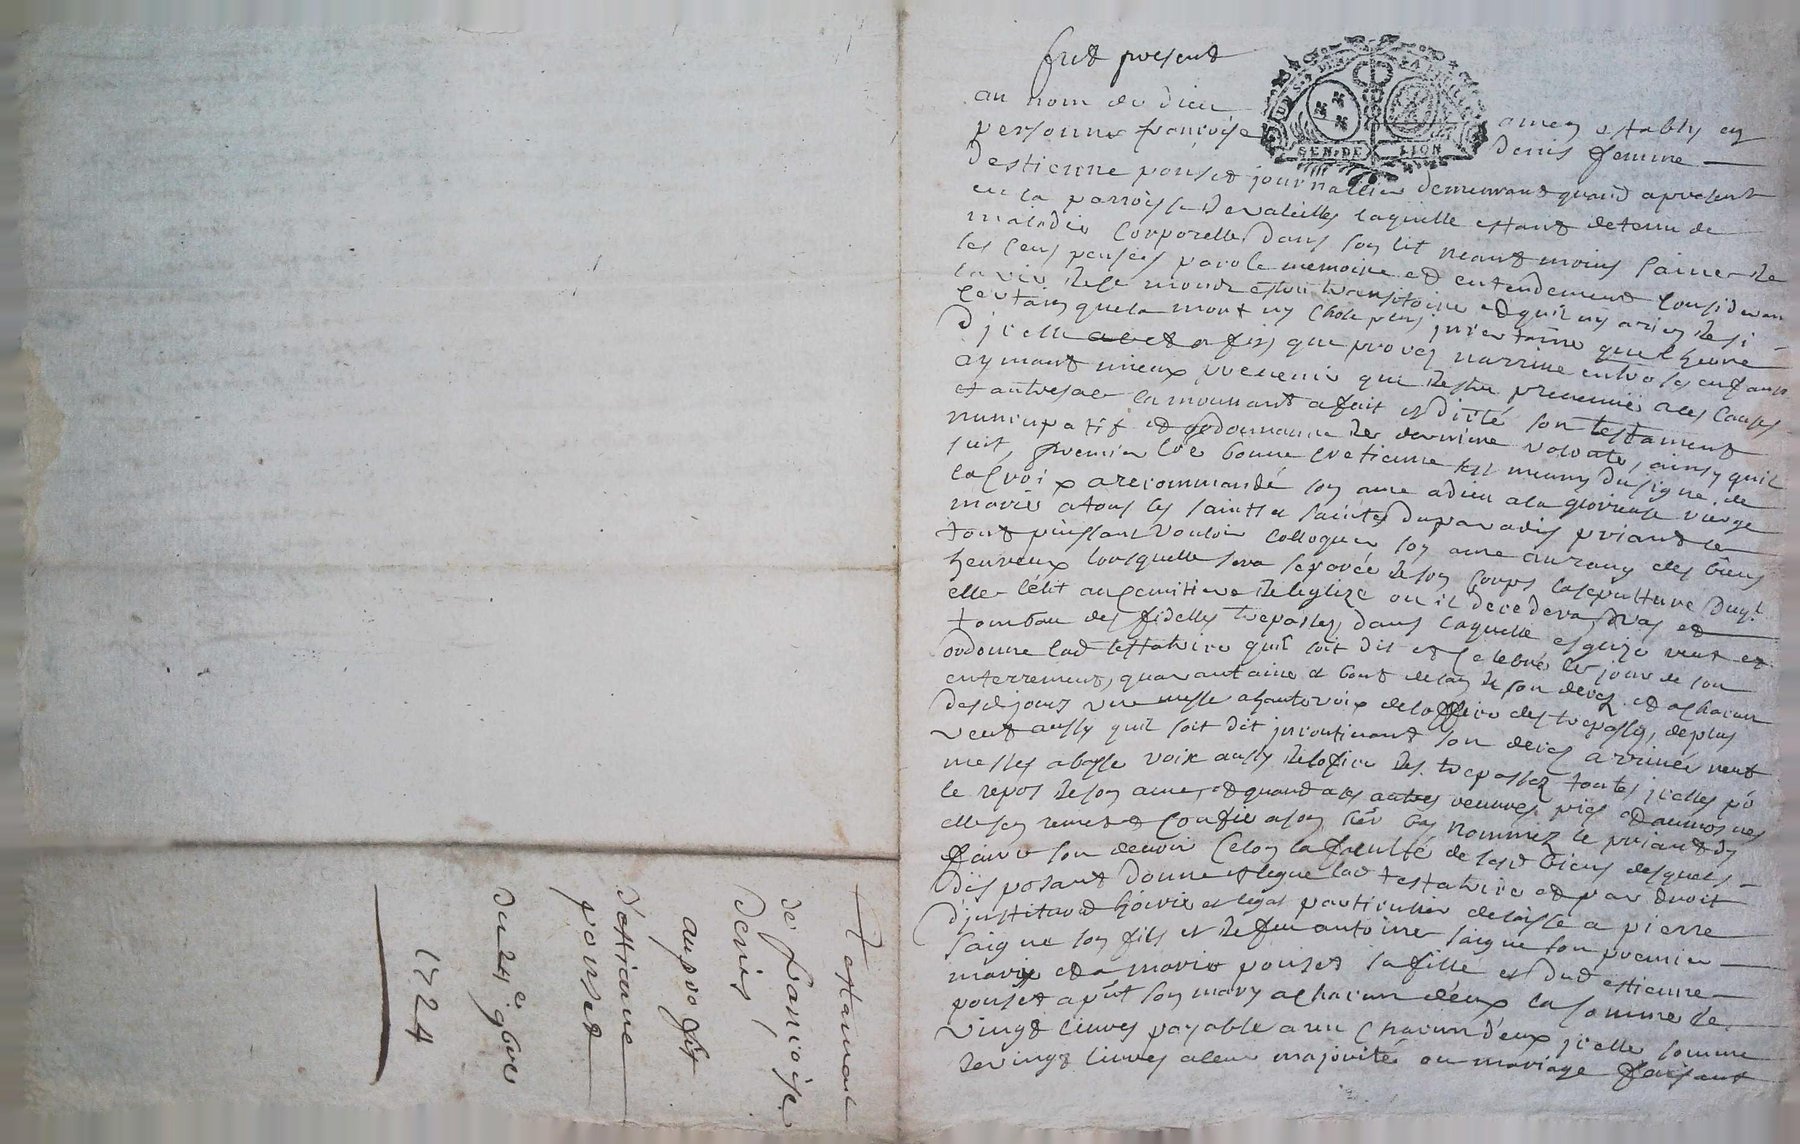 fut present
au nom de dieu amen establÿ en
personne françoise denis femme
destienne pouset journallier demeurant quand apresent
en la parroisse de valeilles laquelle estant detenu de
maladie corporelle dans son lit neant moins saine de
ses sens pensées parole memoire et entendement considerant
la vie de ce monde estre transitoire et quil ny a rien de si
certain que la mort ny chose plus incertaine que lheure
d'jcelle affin que proces narrive entre ses enfans
aymant mieux prevenir que destre prevenue a ces causes
et autres a la mourant a fait et dicté son testament
nuncupatif et ordonnance de derniere volonté, ainsy quil
suit, premier cõe bonne cretienne sest muny du signe de
la croix a recommandé son ame a dieu a la glorieuse vierge
marie a tous les saints et saintes du paradis priant le
tout puissant vouloir colloquer son ame au rang des biens
heureux lorsquelle sera separée de son corps la sepulture duql
elle élit au cemitiere de leglize ou il decedera dvas et
tombau des fidelles trepasses, dans laquelle esglize veut et
ordonne lad testatrice quil soit dit et celebré le jour de son
enterrement, quarantaine et bout de lan de son deces et a chacun
desd jours une messe a haute voix de loffice des trepassés, de plus
veut aussy quil soit dit jncontinant son deces arrivé neuf
messes a basse voix aussy de lofice des trepassez toutes jcelles põ
le repos de son ame, et quand a ses autres oeuvres pies et aumosnes
elle sen remet et confie a son héẽ bas nommez le priant dy
faire son devoir selon la faculté de sesd biens desquels
disposant donne et legue lad testatrice et par droit
d'jnstitution hoirie et legat particulier delaisse a pierre
saigne son fils et de feu antoine saigne son premier
mary et a marie pouset sa fille et dud estienne
pouset apñt son mary a chacun deux la somme de
vingt livres payable a un chacun d'eux jcelle somme
de vingt livres a leur majorité ou mariage faisant
Testament
de françoise
Denis,
au proffit
d'estienne
pouset
du 24e 9bre
1724
GEN. DE LION